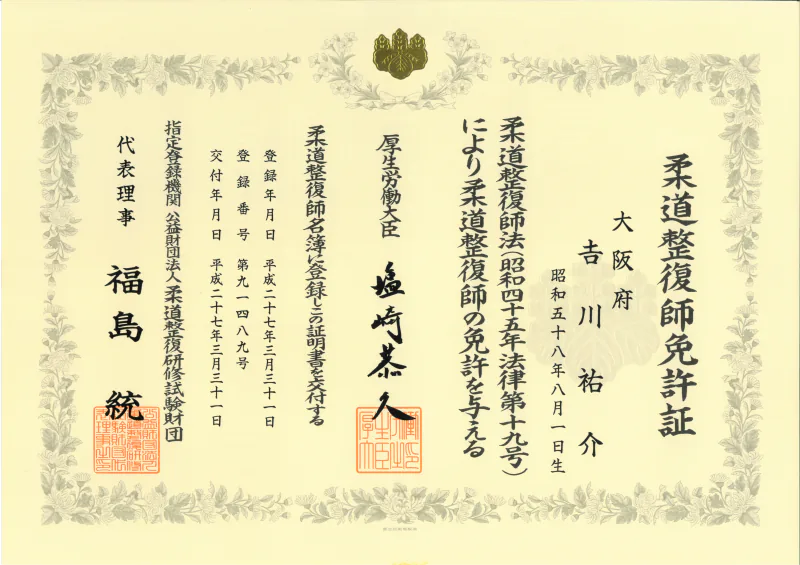 柔道整復師免許証
大阪府
吉川祐介
昭和五十八年八月一日生
柔道整復師法(昭和四十五年法律第十九号)
により柔道整復師の免許を与える
厚生労働大臣 塩崎恭久
柔道整復師名簿に登録しこの証明書を交付する
登録年月日 平成二十七年三月三十一日
登録番号 第九一四八九号
交付年月日 平成二十七年三月三十一日
指定登録機関 公益財団法人 柔道整復研修試験財団
代表理事 福島統